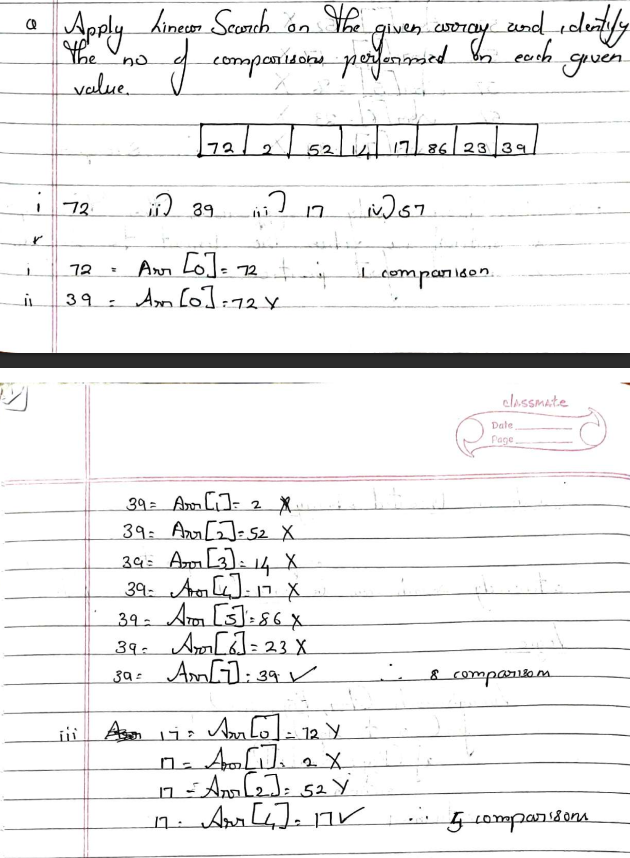 Q Apply Linear Search on the given array and identify
the no of comparisons performed on each given
value.
72 2 52 14 17 86 23 39
i 72 ii) 39 iii) 17 iv) 57
i 72 = Arr [0] = 72 ∴ 1 comparison
ii 39 = Arr [0] = 72 X
classmate
Date
Page
39 = Arr [1] = 2 X
39 = Arr [2] = 52 X
39 = Arr [3] = 14 X
39 = Arr [4] = 17 X
39 = Arr [5] = 86 X
39 = Arr [6] = 23 X
39 = Arr [7] = 39 ✓ ∴ 8 comparison
iii 17 = Arr [0] = 72 X
17 = Arr [1] = 2 X
17 = Arr [2] = 52 X
17 = Arr [4] = 17 ✓ ∴ 5 comparisons